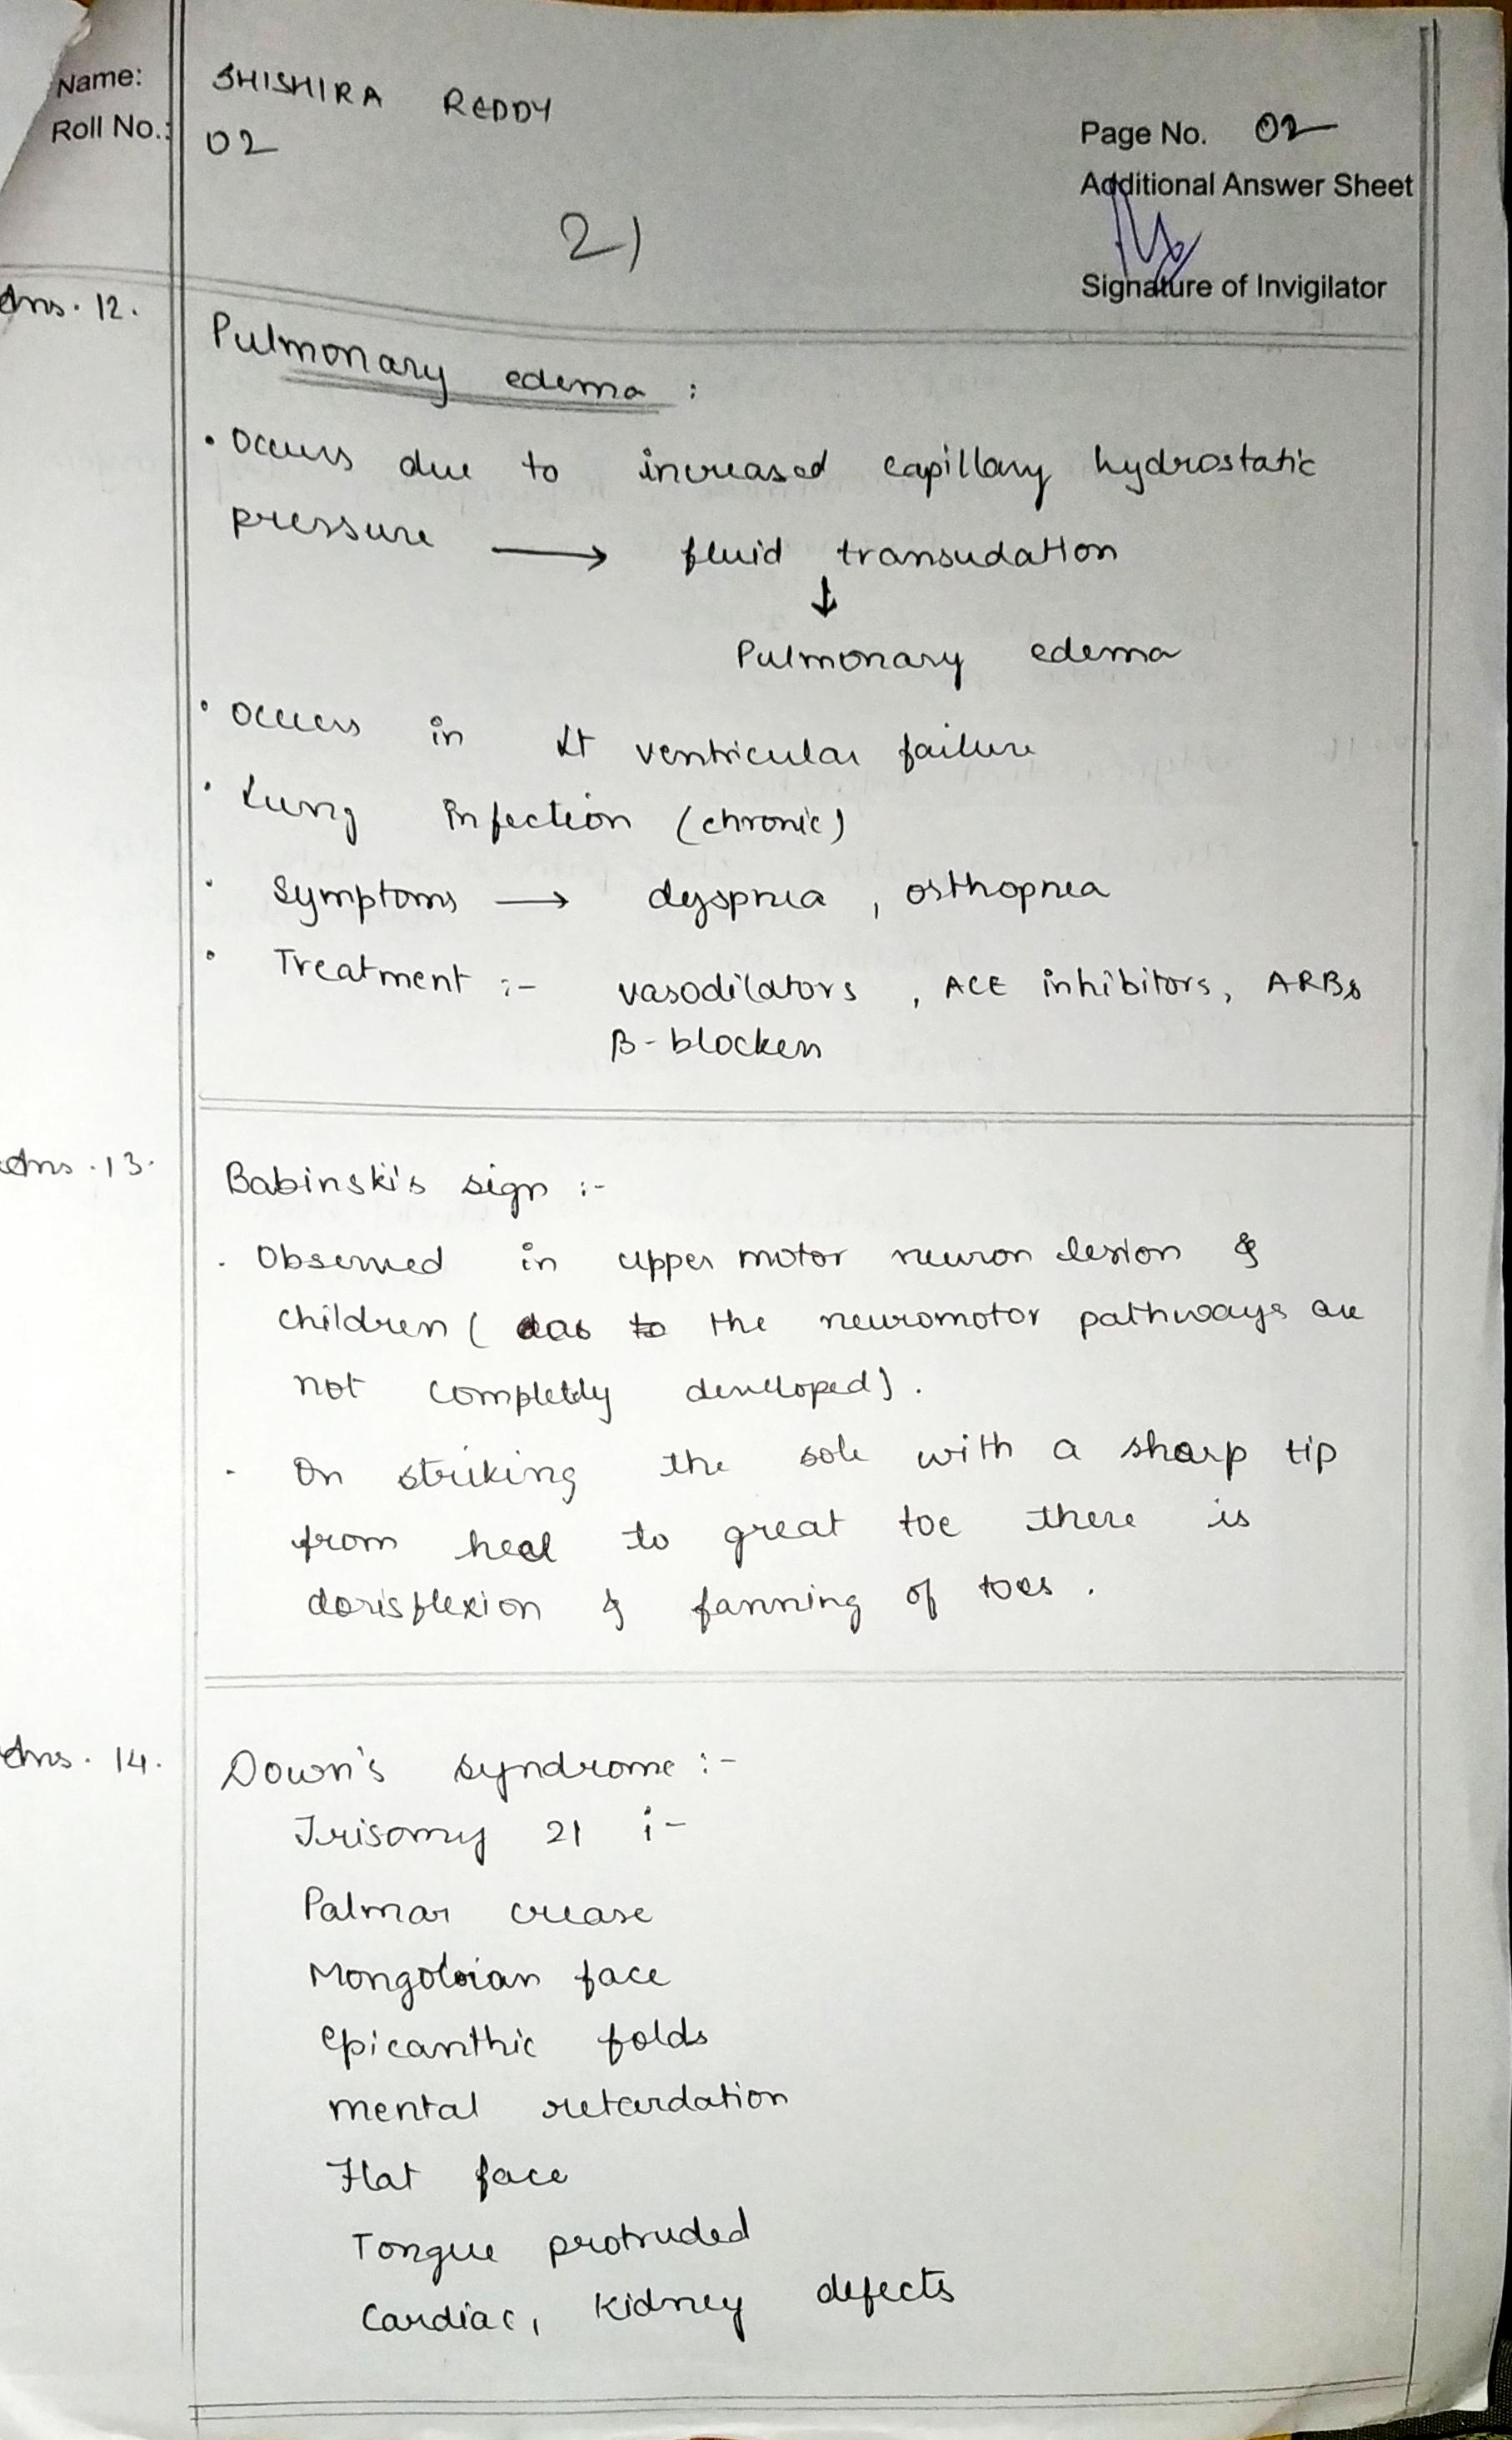 Name: SHISHIRA REDDY
Roll No.: 02
Page No. 02
Additional Answer Sheet
21
Signature of Invigilator
Ans. 12.
Pulmonary edema :
• Occurs due to increased capillary hydrostatic
pressure → fluid transudation
↓
Pulmonary edema
• Occurs in Lt ventricular failure
• Lung infection (chronic)
• Symptoms → dyspnea , orthopnea
• Treatment :- vasodilators , ACE inhibitors, ARBs
β-blockers
Ans. 13.
Babinski's sign :-
. Observed in upper motor neuron lesion &
children ( as the neuromotor pathways are
not completely developed) .
- On striking the sole with a sharp tip
from heel to great toe there is
dorisflexion & fanning of toes .
Ans. 14.
Down's syndrome :-
Trisomy 21 :-
Palmar crease
Mongoloian face
epicanthic folds
mental retardation
Flat face
Tongue protruded
Cardiac, Kidney defects